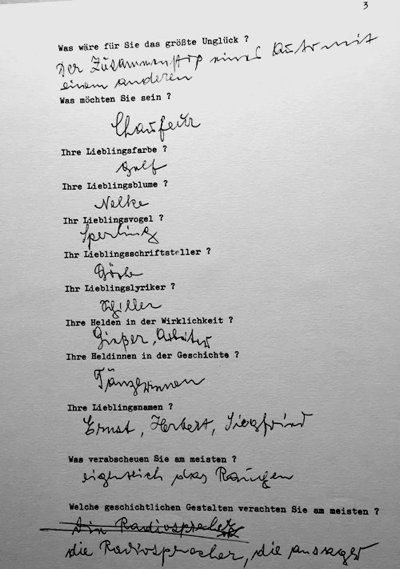 3
Was wäre für Sie das größte Unglück ?
Der Zusammenstoß eines Auto mit
einem anderen
Was möchten Sie sein ?
Chaufeür
Ihre Lieblingsfarbe ?
Ihre Lieblingsblume ?
Nelke
Ihr Lieblingsvogel ?
Sperling
Ihr Lieblingsschriftsteller ?
Ihr Lieblingslyriker ?
Schiller
Ihre Helden in der Wirklichkeit ?
Gießer, Arbeiter
Ihre Heldinnen in der Geschichte ?
Tänzerinnen
Ihre Lieblingsnamen ?
Ernst, Herbert, Siegfried
Was verabscheuen Sie am meisten ?
eigentlich das Raugen
Welche geschichtlichen Gestalten verachten Sie am meisten ?
Ein Radiosprecher
die Radiosprecher, die ansager